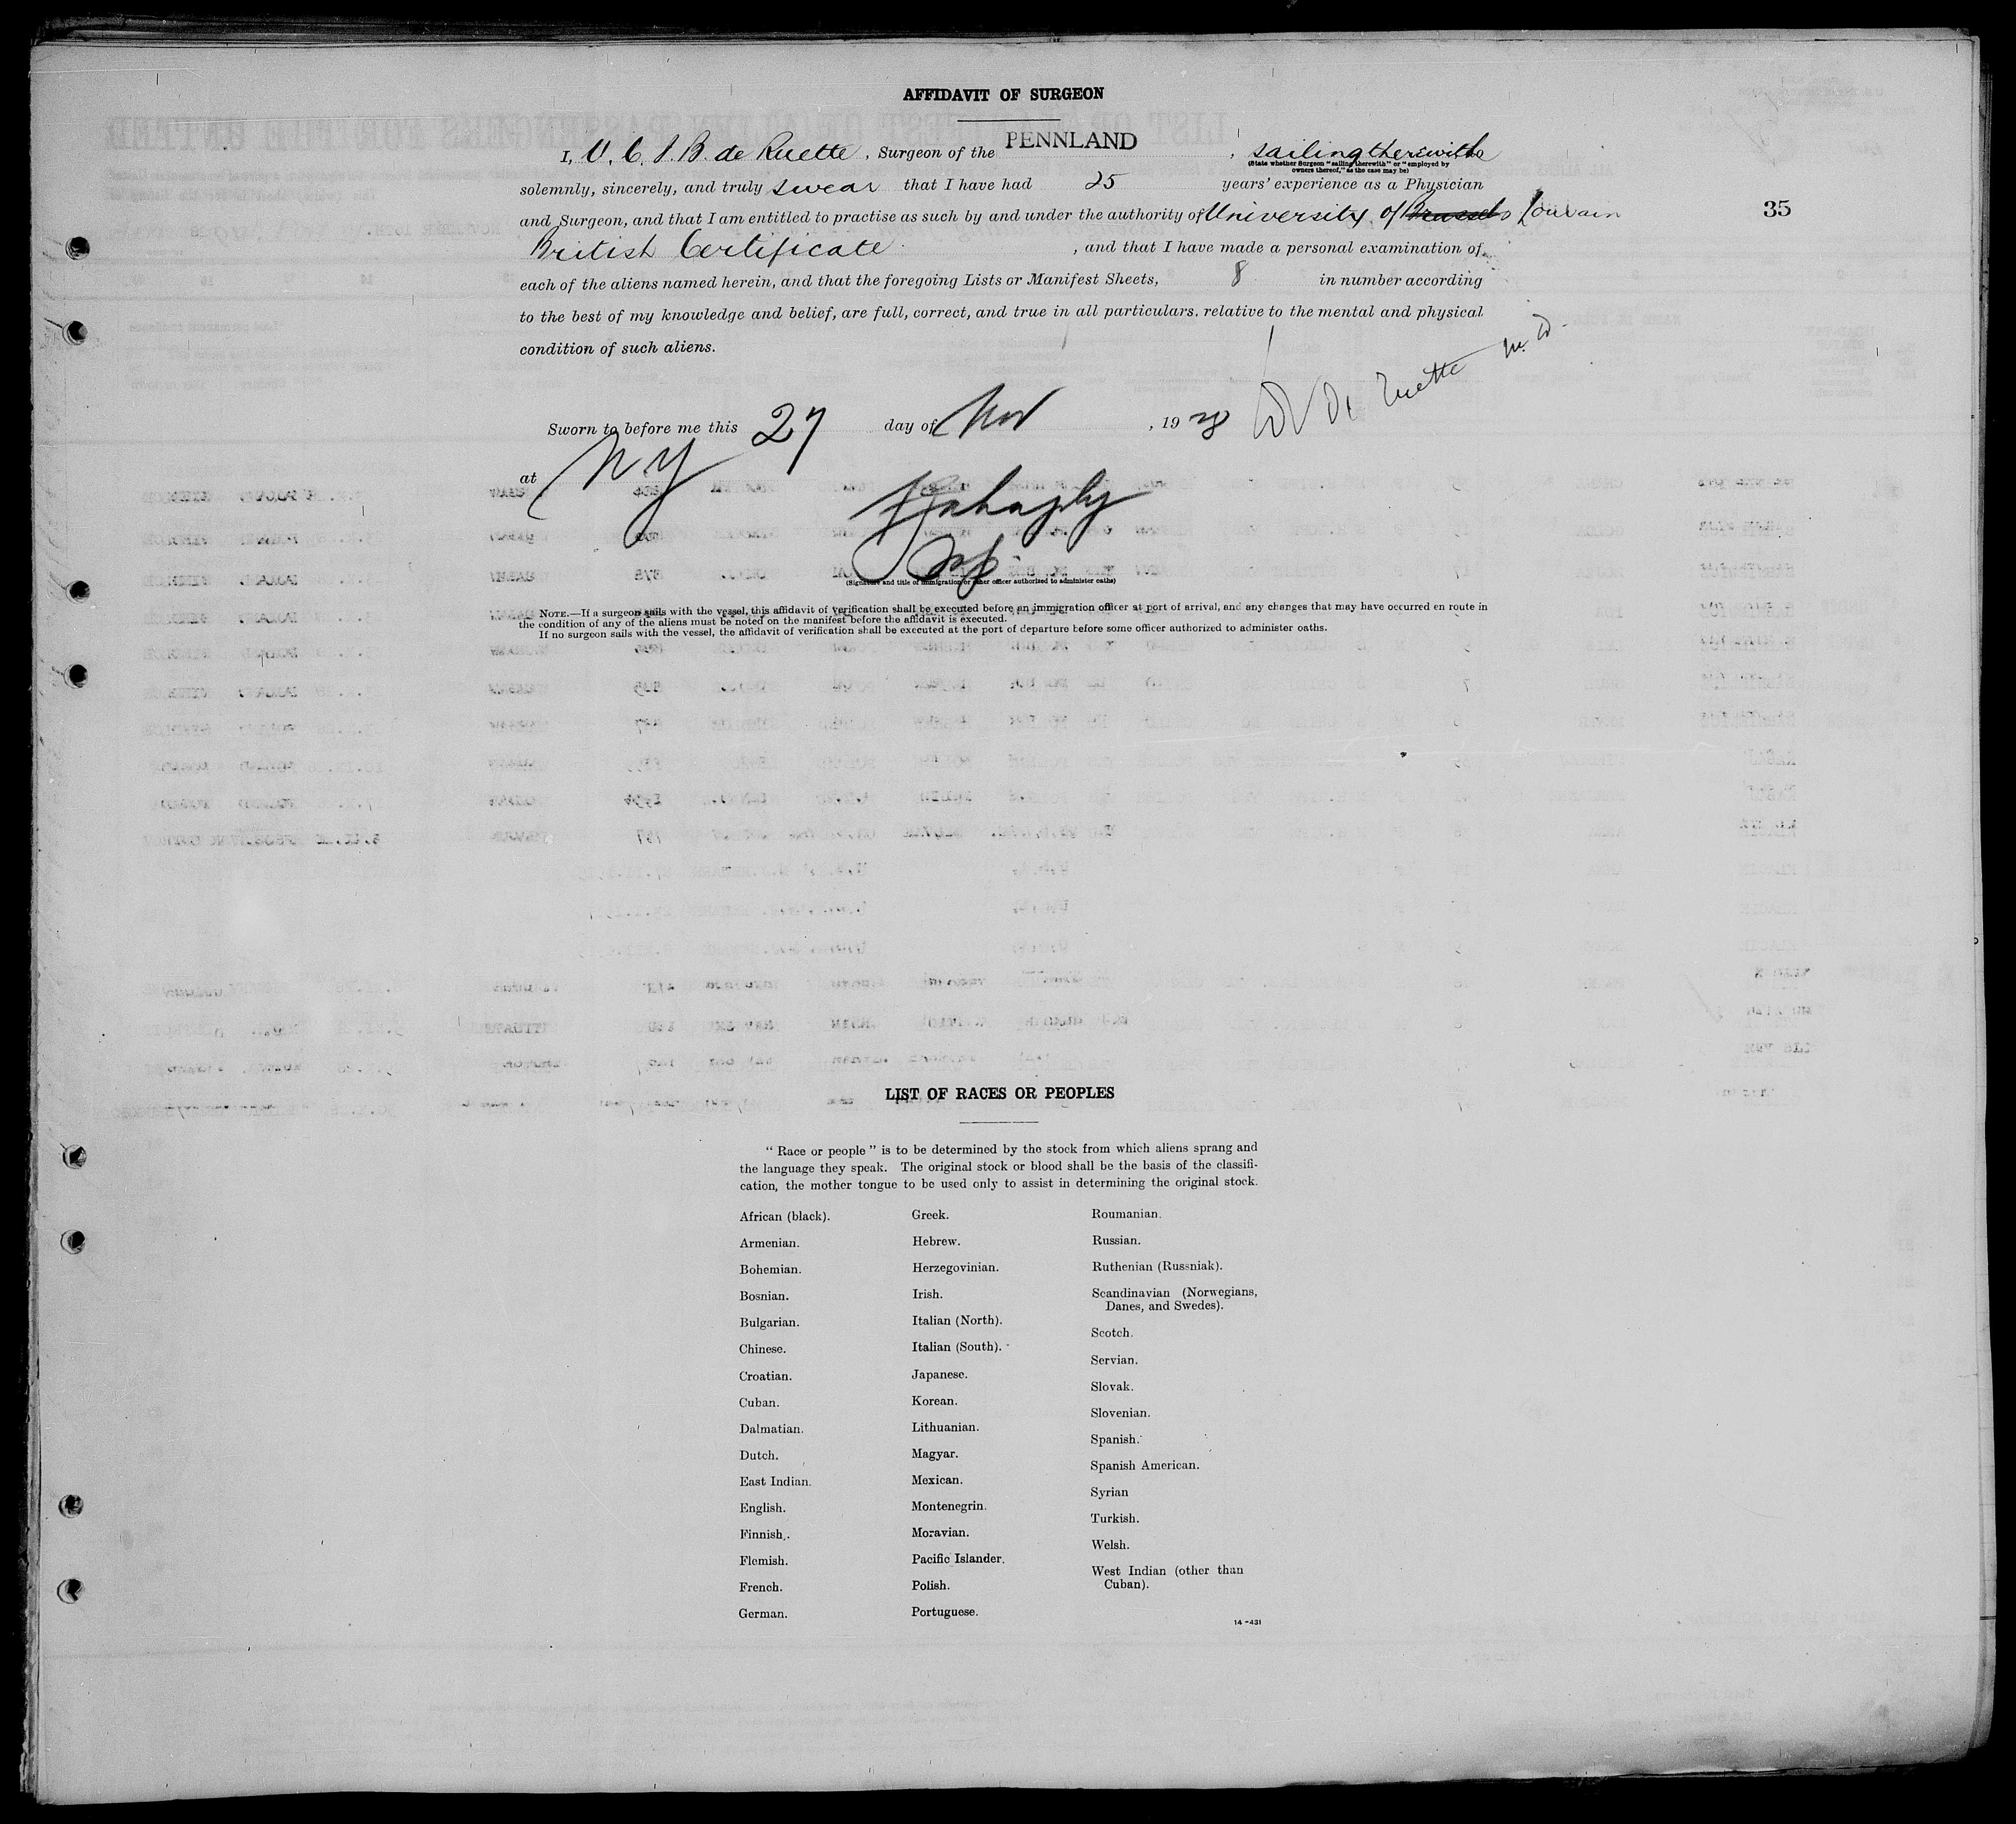 AFFIDAVIT OF SURGEON
I, V. C. J. B. de Ruette, Surgeon of the PENNLAND, sailing therewith
(State whether Surgeon "sailing therewith" or "employed by
owners thereof," as the case may be)
solemnly, sincerely, and truly swear that I have had 25 years' experience as a Physician
and Surgeon, and that I am entitled to practise as such by and under the authority of University of Brussels Louvain
35
British Certificate, and that I have made a personal examination of
each of the aliens named herein, and that the foregoing Lists or Manifest Sheets, 8 in number according
to the best of my knowledge and belief, are full, correct, and true in all particulars. relative to the mental and physical
condition of such aliens.
de Ruette M.D.
Sworn to before me this 27 day of Nov, 1928
at NY
(Signature and title of immigration or other officer authorized to administer oaths)
NOTE.—If a surgeon sails with the vessel, this affidavit of verification shall be executed before an immigration officer at port of arrival, and any changes that may have occurred en route in
the condition of any of the aliens must be noted on the manifest before the affidavit is executed.
If no surgeon sails with the vessel, the affidavit of verification shall be executed at the port of departure before some officer authorized to administer oaths.
LIST OF RACES OR PEOPLES
" Race or people " is to be determined by the stock from which aliens sprang and
the language they speak. The original stock or blood shall be the basis of the classifi-
cation, the mother tongue to be used only to assist in determining the original stock.
African (black).
Armenian.
Bohemian.
Bosnian.
Bulgarian.
Chinese.
Croatian.
Cuban.
Dalmatian.
Dutch.
East Indian.
English.
Finnish.
Flemish.
French.
German.
Greek.
Hebrew.
Herzegovinian.
Irish.
Italian (North).
Italian (South).
Japanese.
Korean.
Lithuanian.
Magyar.
Mexican.
Montenegrin.
Moravian.
Pacific Islander.
Polish.
Portuguese.
Roumanian.
Russian.
Ruthenian (Russniak).
Scandinavian (Norwegians,
Danes, and Swedes).
Scotch.
Servian.
Slovak.
Slovenian.
Spanish.
Spanish American.
Syrian
Turkish.
Welsh.
West Indian (other than
Cuban).
14-431